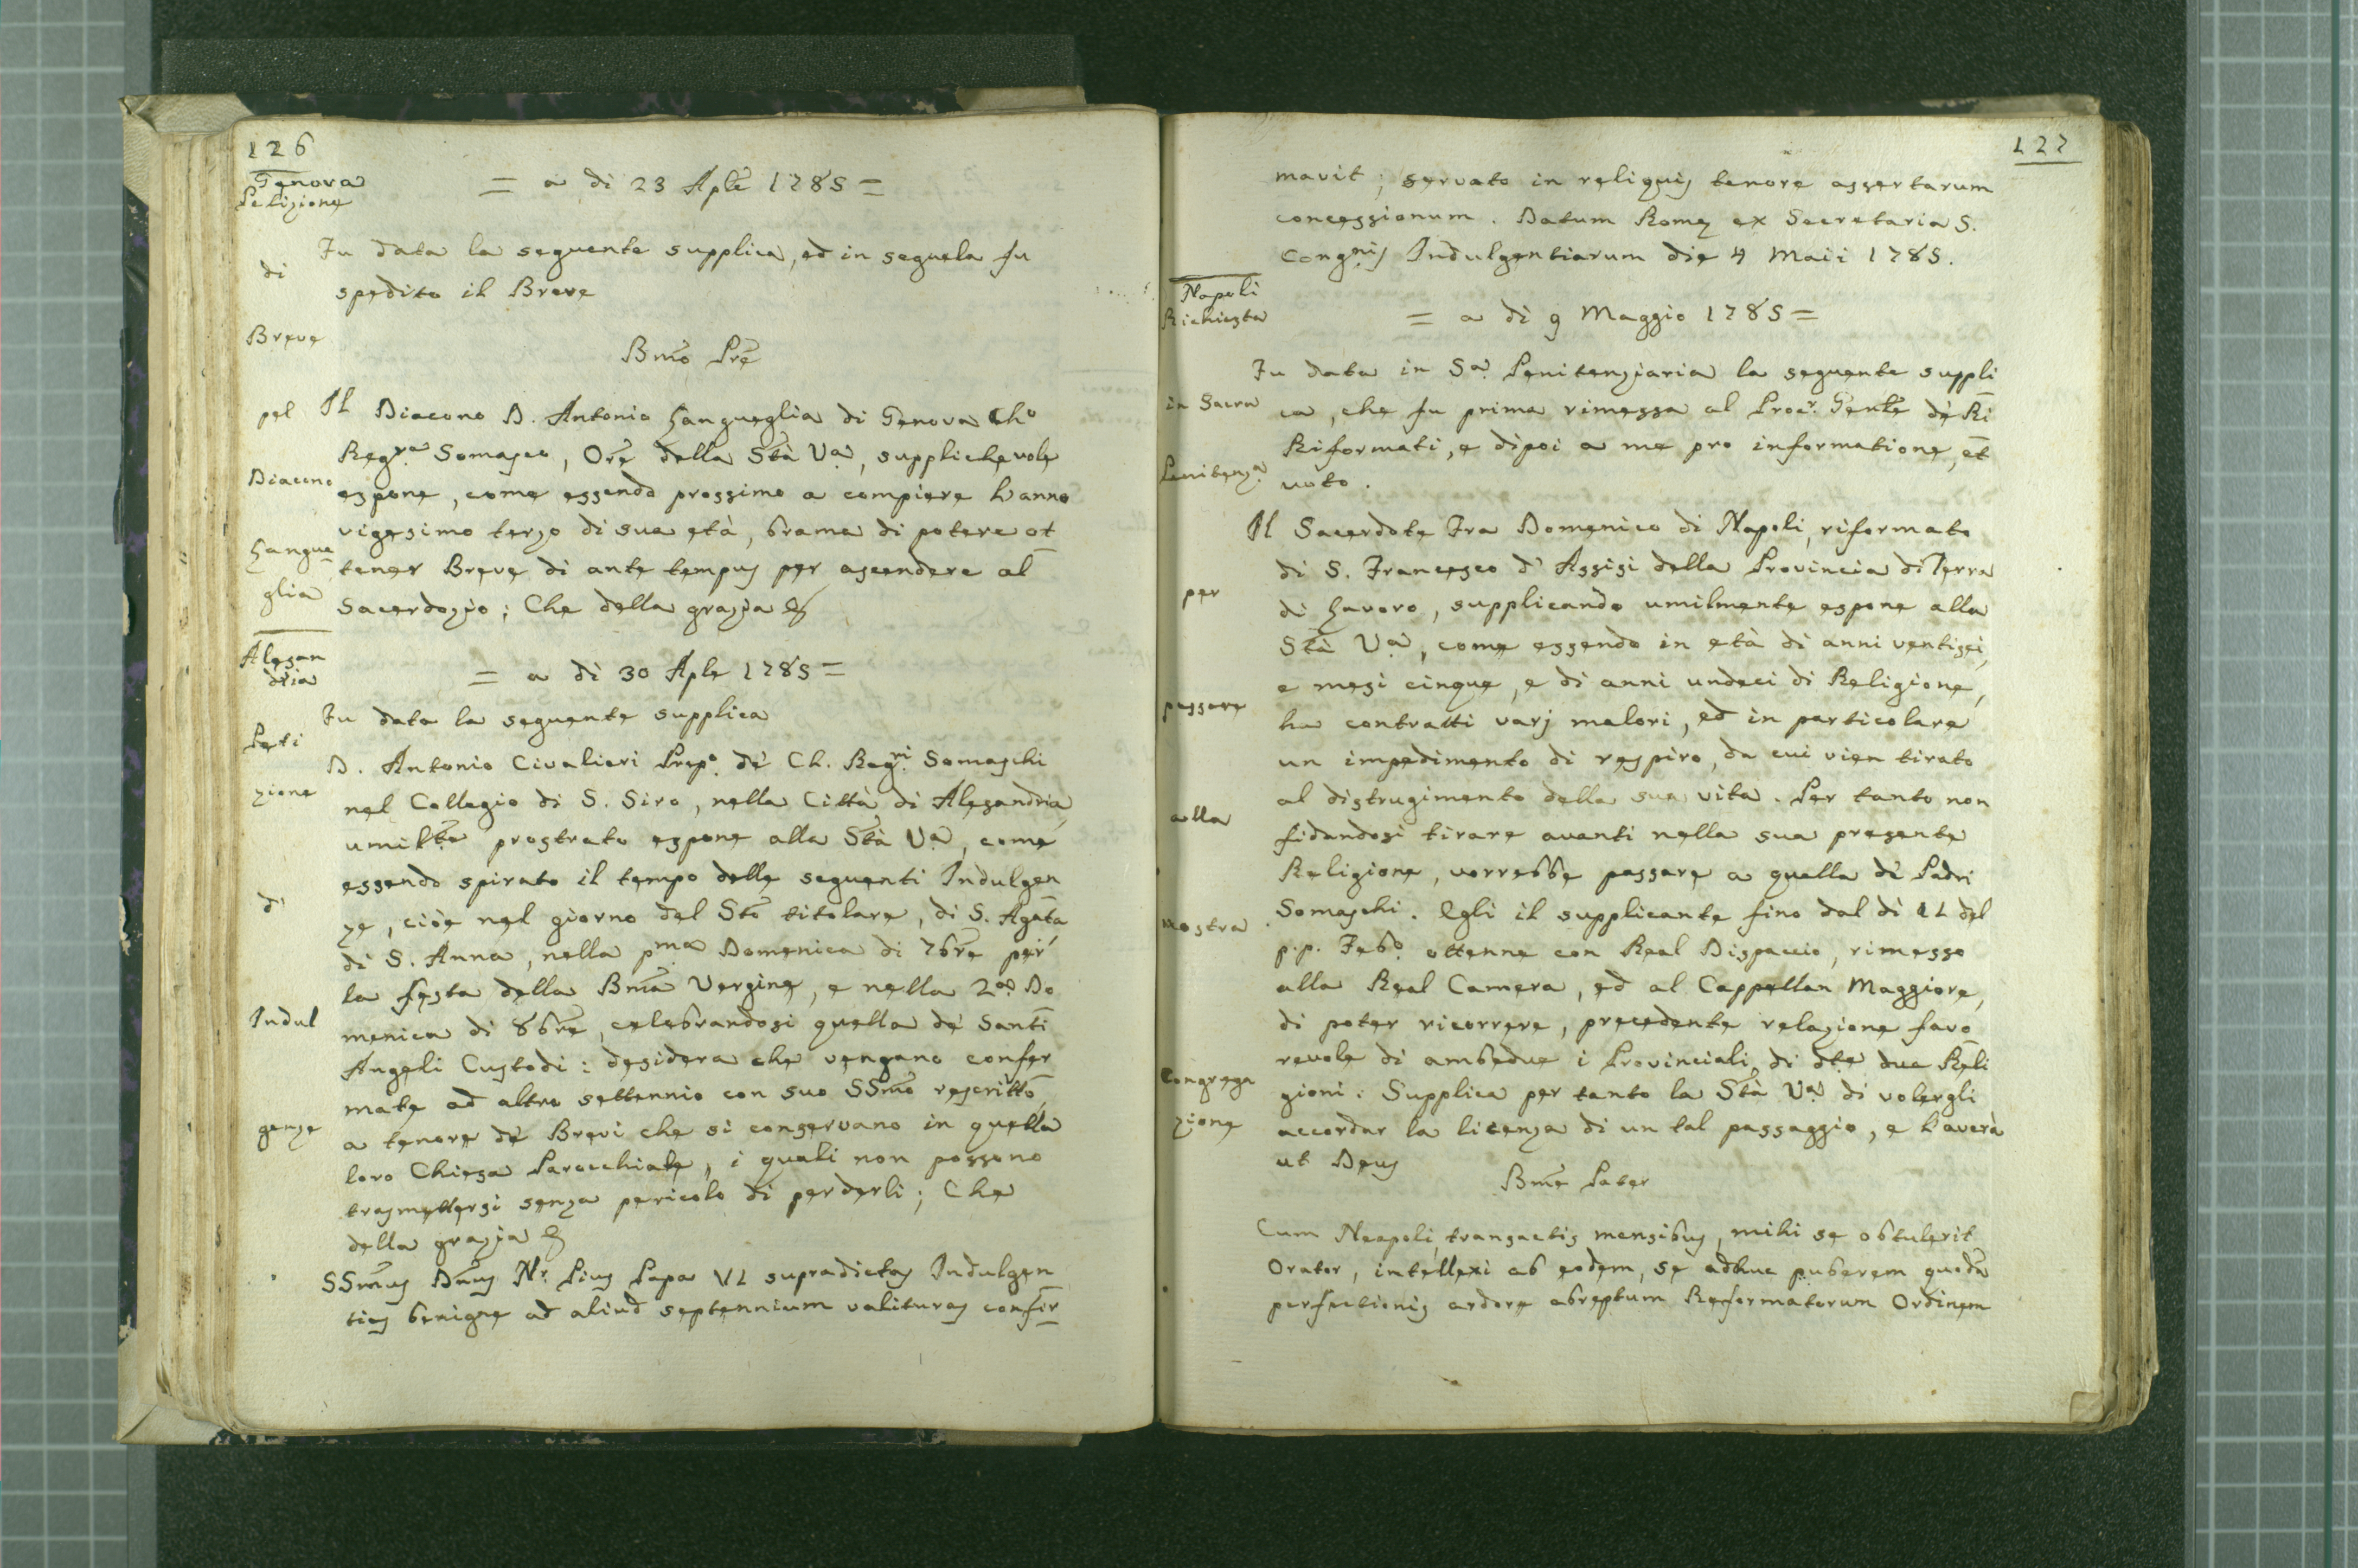 126
Genova
Petizione
di
Breve
pel
Diacono
Langue
glia
= a dì 23 Aple 1785 =
Fu data la seguente supplica, ed in seguela fu
spedito il Breve
Bmo Pre
Il Diacono D. Antonio Langueglia di Genova Cho
Regre Somasco, Ore della Stà Va, supplichevole
espone, come essendo prossimo a compiere l'anno
vigesimo terzo di sua età, brama di potere ot
tener Breve di ante tempus per ascendere al
Sacerdozio; Che della grazia &
Alesan
dria
Peti
zione
d'
Indul
genze
= a dì 30 Aple 1785 =
Fu data la seguente supplica
D. Antonio Civalieri Prepo de' Ch. Regri Somaschi
nel Collegio di S. Siro, nella Città di Alesandria,
umilte prostrato espone alla Stà Va, come
essendo spirato il tempo delle seguenti Indulgen
ze, cioè nel giorno del Sto titolare, di S. Agata
di S. Anna, nella pma Domenica di 7bre per
la festa della Bma Vergine, e nella 2a Do
menica di 8bre, celebrandosi quella de' Santi
Angeli Custodi: desidera che vengano confer
mate ad altro settennio con suo SSmo rescritto,
a tenore de' Brevi che si conservano in quella
loro Chiesa Parocchiale, i quali non possono
trasmettersi senza pericolo di perderli; Che
della grazia &
SSmus Dnus Nr. Pius Papa VI supradictas Indulgen
tias benigne ad aliud septennium valituras confir
127
mavit; servato in reliquis tenore assertarum
concessionum. Datum Romę ex Secretaria S.
Congnis Indulgentiarum die 4 Maii 1785.
Napoli
Richiesta
in Sacra
Penitenza
per
passare
alla
nostra
Congrega
zione
= a dì 9 Maggio 1785 =
Fu data in Sa Penitenziaria la seguente suppli
ca, che fu prima rimessa al Procr. Genle de' Ri
Riformati, e dipoi a me pro informatione, et
voto.
Il Sacerdote Fra Domenico di Napoli, riformato
di S. Francesco d'Assisi della Provincia di Terra
di Lavoro, supplicando umilmente espone alla
Stà Va, come essendo in età di anni ventisei,
e mesi cinque, e di anni undeci di Religione,
ha contratti varj malori, ed in particolare
un impedimento di respiro, da cui vien tirato
al distrugimento della sua vita. Per tanto non
fidandosi tirare avanti nella sua presente
Religione, vorrebbe passare a quella de' Padri
Somaschi. Egli il supplicante fino dal dì 11 del
p.p. Febo ottenne con Real Dispaccio, rimesso
alla Real Camera, ed al Cappellan Maggiore,
di poter ricorrere, precedente relazione favo
revole di ambedue i Provinciali di dte due Reli
gioni: Supplica per tanto la Stà Va di volergli
accordar la licenza di un tal passaggio, e l'averà
ut Deus
Bme Pater
Cum Neapoli, transactis mensibus, mihi se obtulerit
Orator, intellexi ab eodem, se adhuc puberem quodã
perfectionis ardore abreptum Reformatorum Ordinem